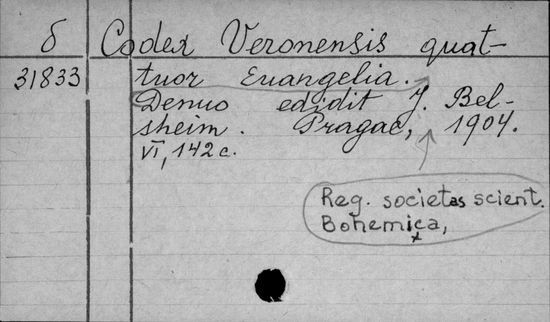 б Codex Veronensis quat-
31833 tuor Euangelia.
Denuo edidit J. Bel-
sheim. Pragae, 1904.
VI, 142 c.
Reg. societas scient.
Bohemica,